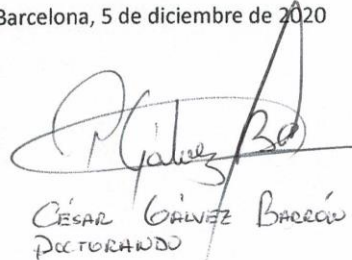 Barcelona, 5 de diciembre de 2020
Gálvez B
CÉSAR GÁLVEZ BARRÓN
DOCTORANDO